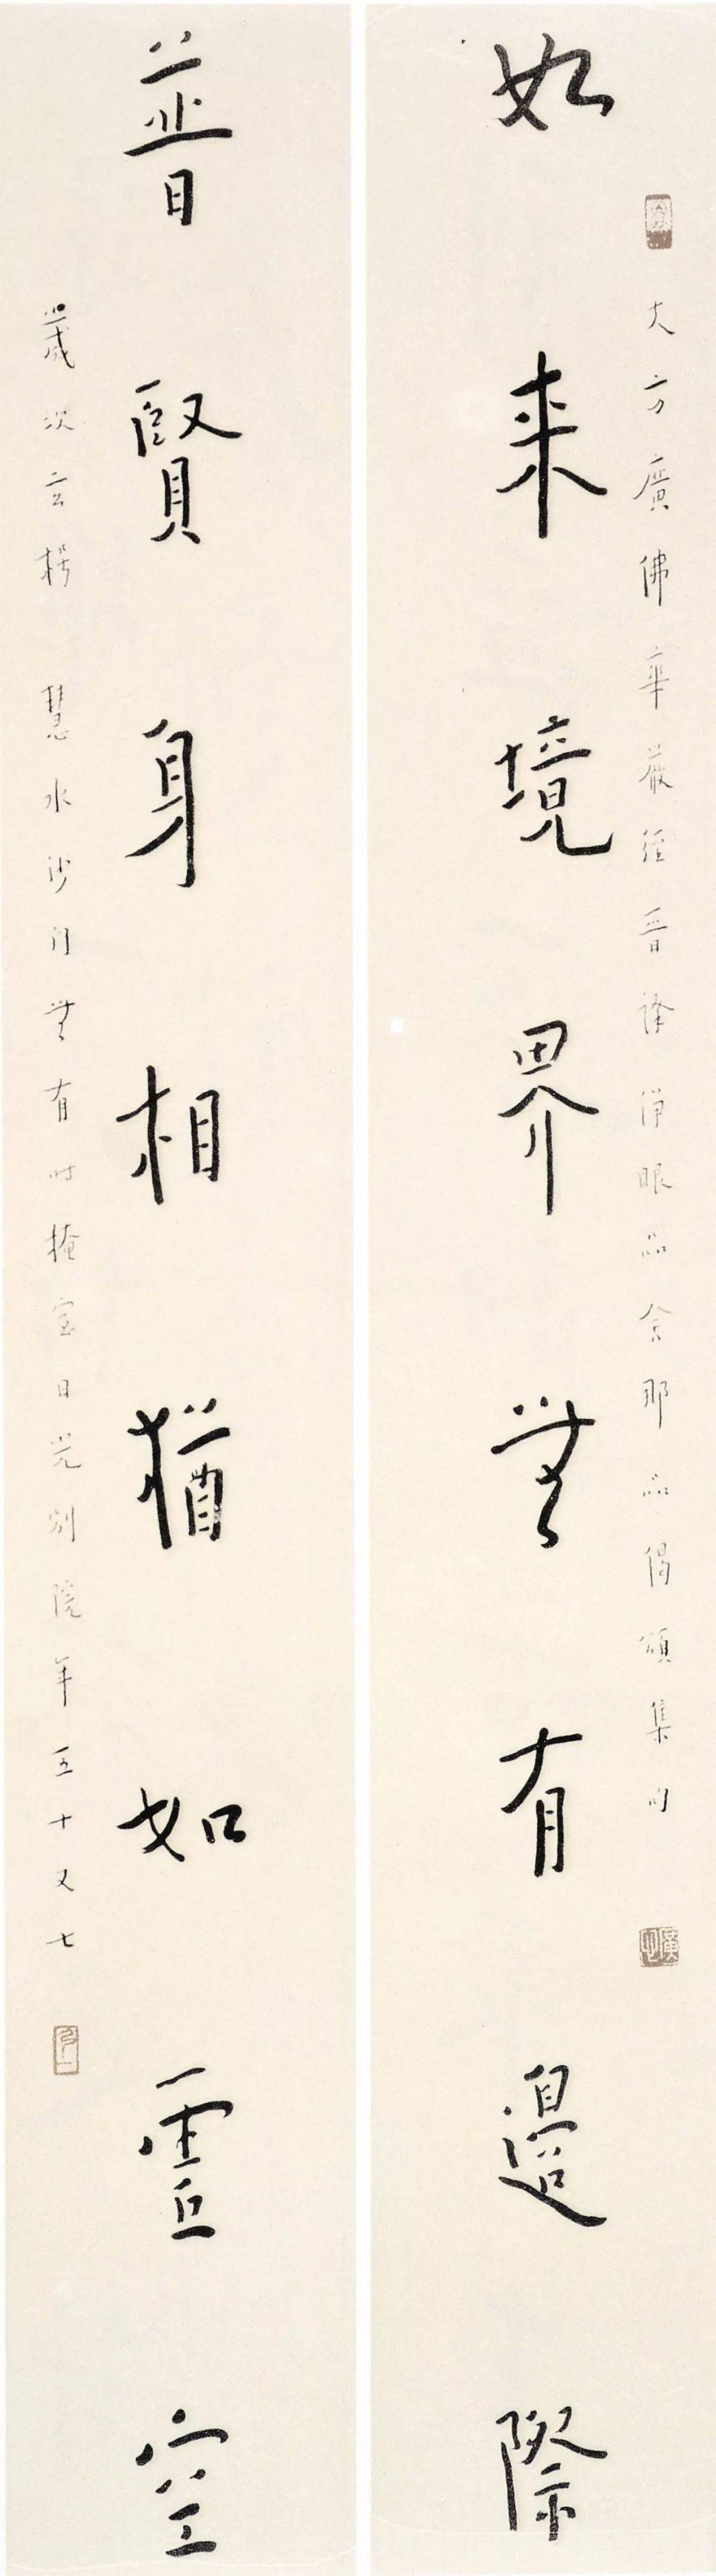 如来境界無有邊際
大方廣佛華嚴經晉譯淨眼品舍那品偈頌集句
普賢身相猶如虛空
歲次玄枵 慧水沙門無有時掩室日光別院年五十又七